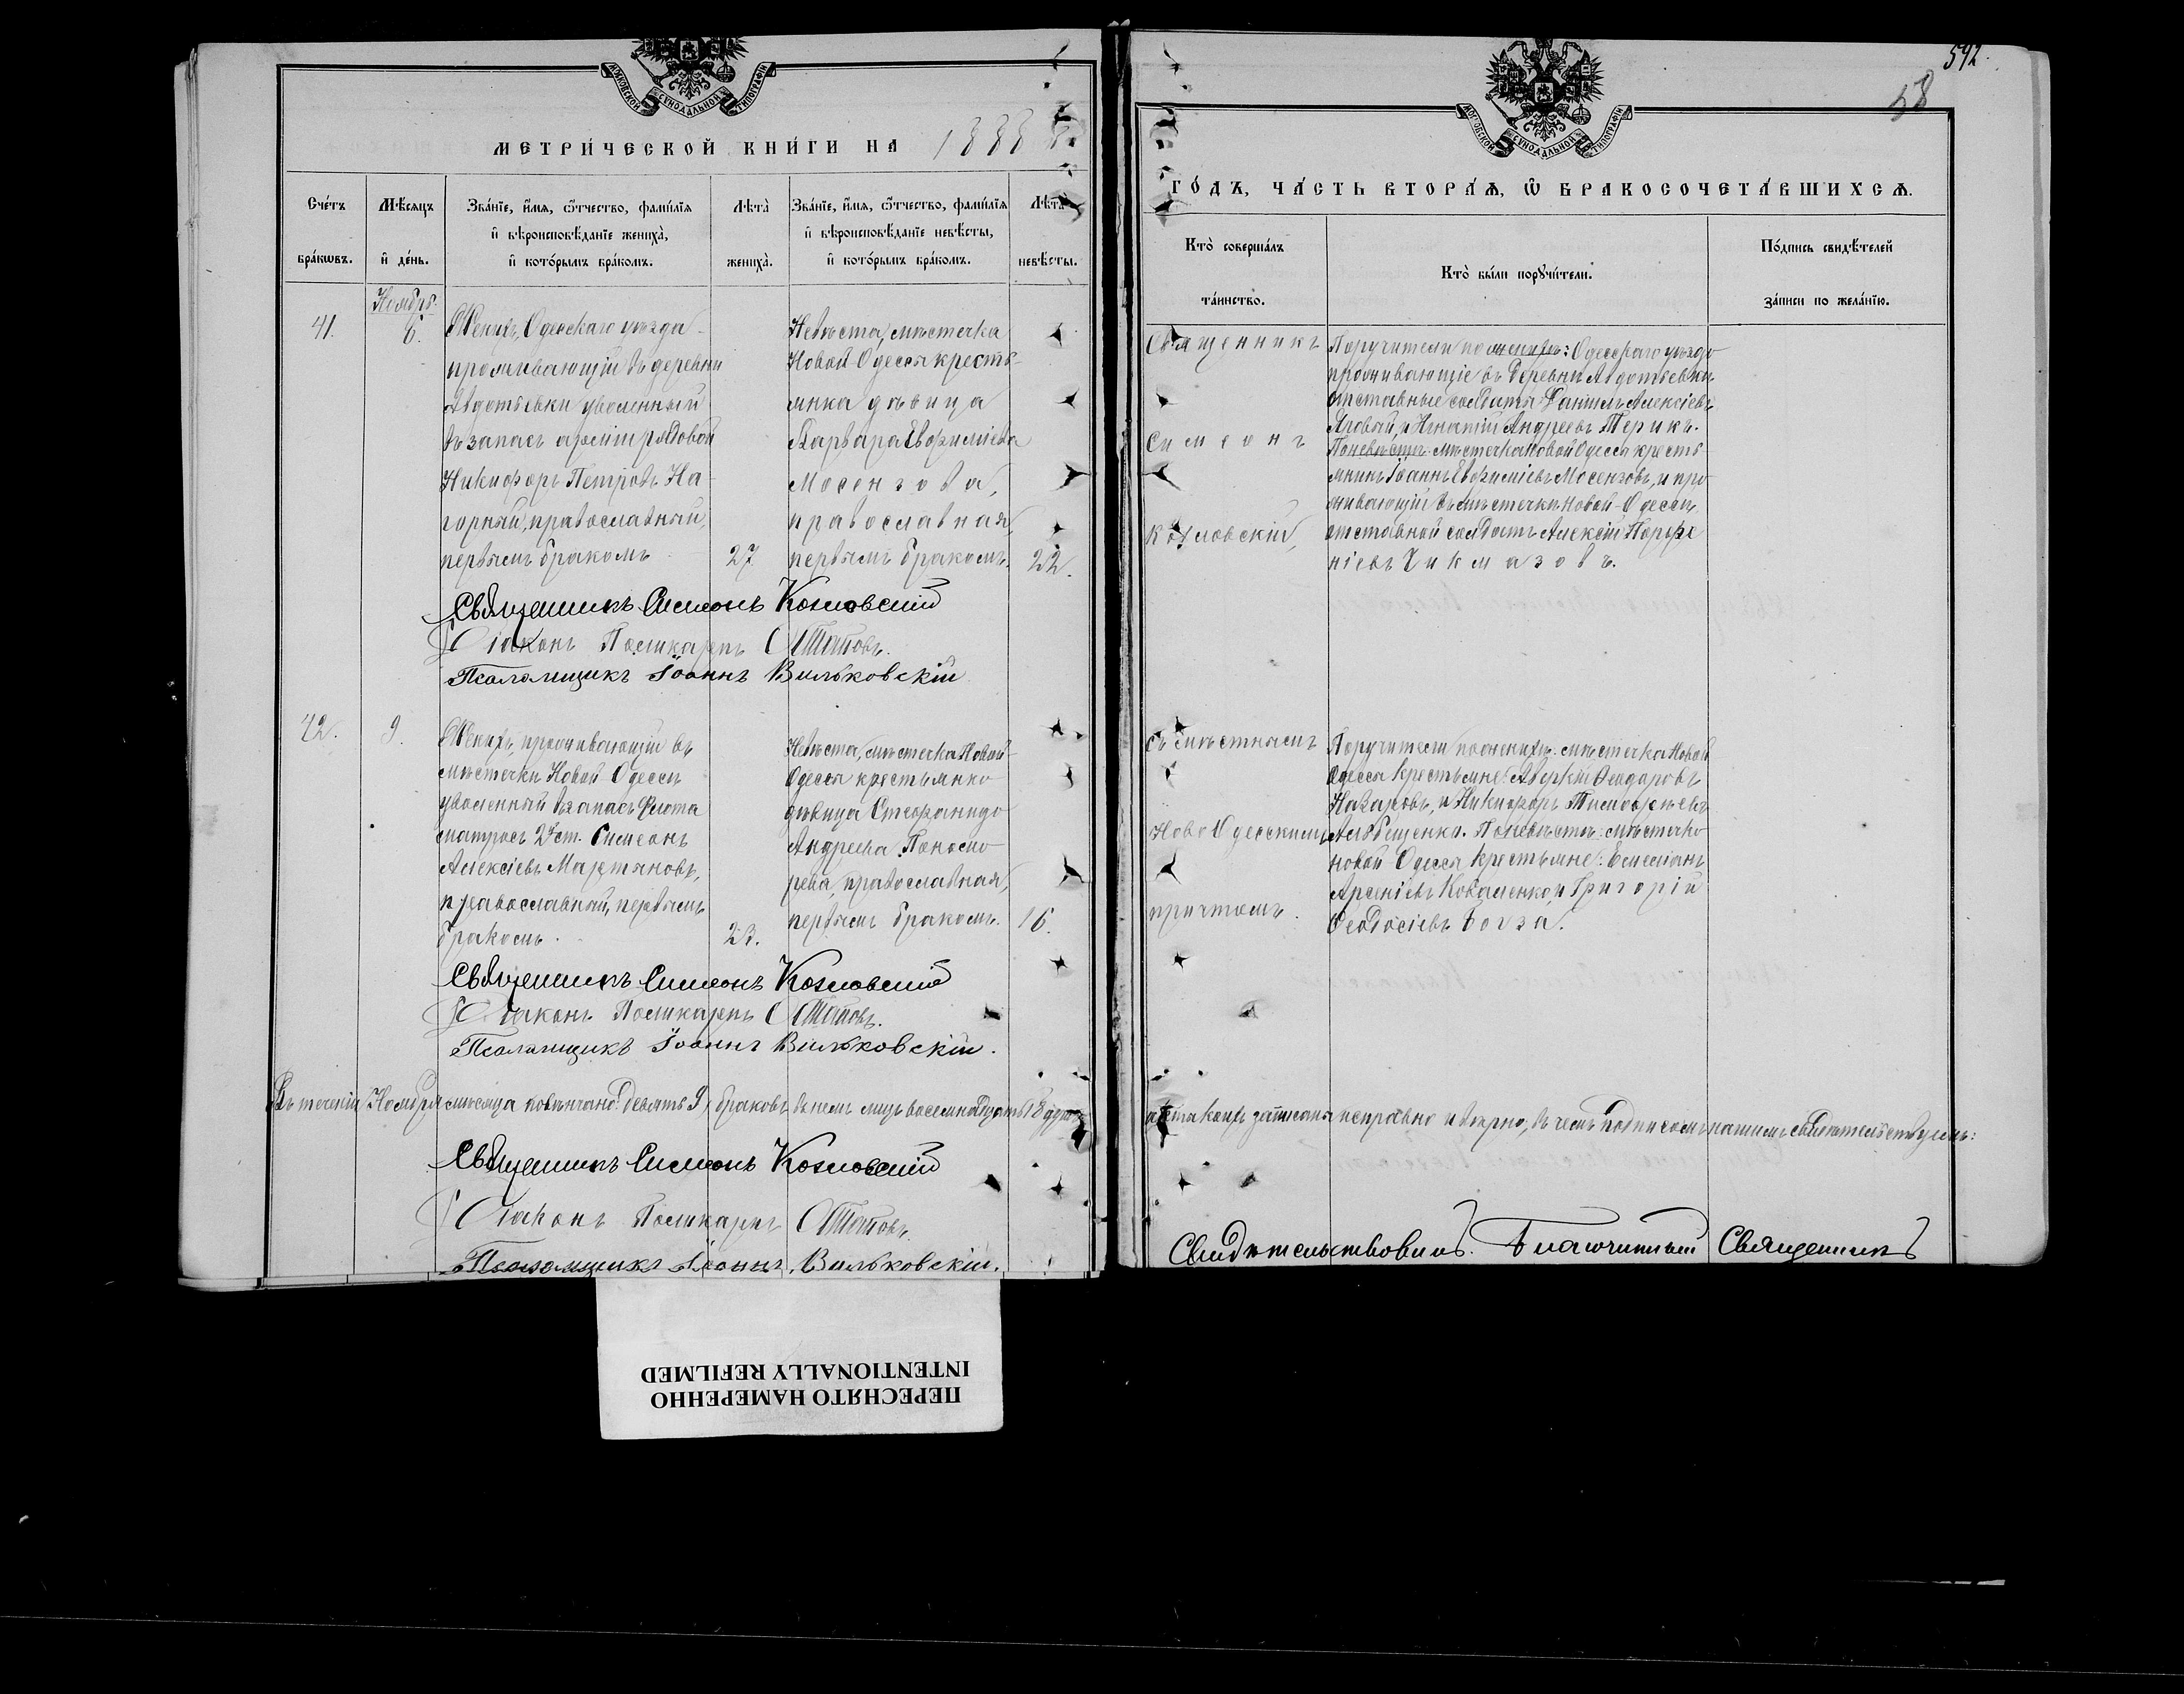 МОСКОВСКОЙ СѴНОДАЛЬНОЙ ТИПОГРАФІИ
МЕТРИЧЕСКОЙ КНИГИ НА 1888
Счетъ браковъ.
Мѣсяцъ и день.
Званіе, имя, отчество, фамилія
и вѣроисповѣданіе жениха,
и которымъ бракомъ.
Лѣта жениха.
Званіе, имя, отчество, фамилія
и вѣроисповѣданіе невѣсты,
и которымъ бракомъ.
Лѣта невѣсты.
Ноябрь.
41.
6.
Женихъ, Одесскаго уѣзда
проживающій въ деревни
Авдотьевки уволенный
въ запасъ арміи рядовой
Никифоръ Петровъ На-
горный, православный,
первымъ бракомъ
27
Невѣста, мѣстечка
Новой-Одессы кресть-
янка дѣвица
Варвара Евфиміева
Мосензова,
православная,
первымъ бракомъ.
22.
Священникъ Симеонъ Козловскій
Діаконъ Поликарпъ
Псаломщикъ Іоаннъ Вильковскій
42.
9.
Женихъ, проживающій въ
мѣстечки Новой-Одессы
уволенный въ запасъ флота
матросъ 2й ст. Симеонъ
Алексіевъ Мартяновъ,
православный, первымъ
бракомъ.
23.
Невѣста, мѣстечка Новой-
Одессы крестьянка
дѣвица Стефанида
Андреева Поно-
рева, православная,
первымъ бракомъ.
16.
Священникъ Симеонъ Козловскій
Діаконъ Поликарпъ
Псаломщикъ Іоаннъ Вильковскій.
Въ теченіи Ноября мѣсяца повѣнчано девять 9, браковъ, въ нихъ лицъ восемнадцать 18
Священникъ Симеонъ Козловскій
Діаконъ Поликарпъ
Псаломщикъ Іоаннъ Вильковскій.
592.
58
МОСКОВСКОЙ СѴНОДАЛЬНОЙ ТИПОГРАФІИ
ГОДЪ, ЧАСТЬ ВТОРАЯ, Ѡ БРАКОСОЧЕТАВШИХСЯ.
Кто совершалъ таинство.
Кто были поручители.
Подпись свидѣтелей записи по желанію.
Священникъ
Симеонъ
Козловскій,
Поручители по женихѣ: Одесскаго уѣзда
проживающіе въ деревни Авдотьевки
отставные солдаты Даніилъ Алексіевъ
Яровый, и Игнатій Андреевъ Терикъ.
По невѣстѣ: мѣстечка Новой Одессы кресть-
янинъ Іоаннъ Евфиміевъ Мосензовъ, и про-
живающій въ мѣстечки Новой-Одессы
отставной солдатъ Алексій Парфе-
ніевъ Чикмазовъ.
съ мѣстнымъ
Ново Одесскимъ
причтомъ.
Поручители по женихѣ: мѣстечка Новой
Одессы крестьяне: Аверкій Ѳеодоровъ
Назаровъ, и Никифоръ Тимофеевъ
По невѣстѣ: мѣстечка
новой Одессы крестьяне: Емеліанъ
Арсеніевъ Коваленко, и Григорій
Ѳеодосіевъ Богза.
записаны исправно и вѣрно, въ чемъ подписомъ нашимъ свидѣтельствуемъ:
Свидѣтельствовалъ. Благочинный Священникъ
ПЕРЕСНЯТО НАМЕРЕННО
INTENTIONALLY REFILMED